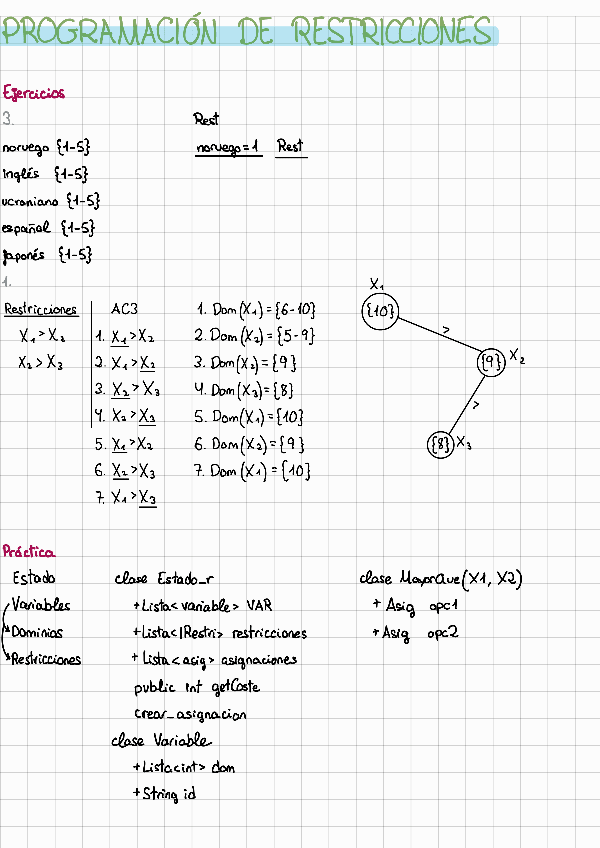 PROGRAMACIÓN DE RESTRICCIONES
Ejercicios
3.
Rest
noruego {1-5}
noruego = 1 Rest
inglés {1-5}
ucraniano {1-5}
español {1-5}
japonés {1-5}
1.
Restricciones
X₁ > X₂
X₂ > X₃
AC3
1. X₁ > X₂
2. X₁ > X₂
3. X₂ > X₃
4. X₂ > X₃
5. X₁ > X₂
6. X₂ > X₃
7. X₁ > X₃
1. Dom(X₁) = {6-10}
2. Dom(X₂) = {5-9}
3. Dom(X₂) = {9}
4. Dom(X₃) = {8}
5. Dom(X₁) = {10}
6. Dom(X₂) = {9}
7. Dom(X₁) = {10}
X₁
{10}
>
{9} X₂
>
{8} X₃
Práctica
Estado
Variables
Dominios
Restricciones
clase Estado_r
+ Lista<variable> VAR
+ Lista<IRestri> restricciones
+ Lista<asig> asignaciones
public int getCoste
crear_asignacion
clase Variable
+ Lista<int> dom
+ String id
clase MayorQue(X1, X2)
+ Asig opc1
+ Asig opc2